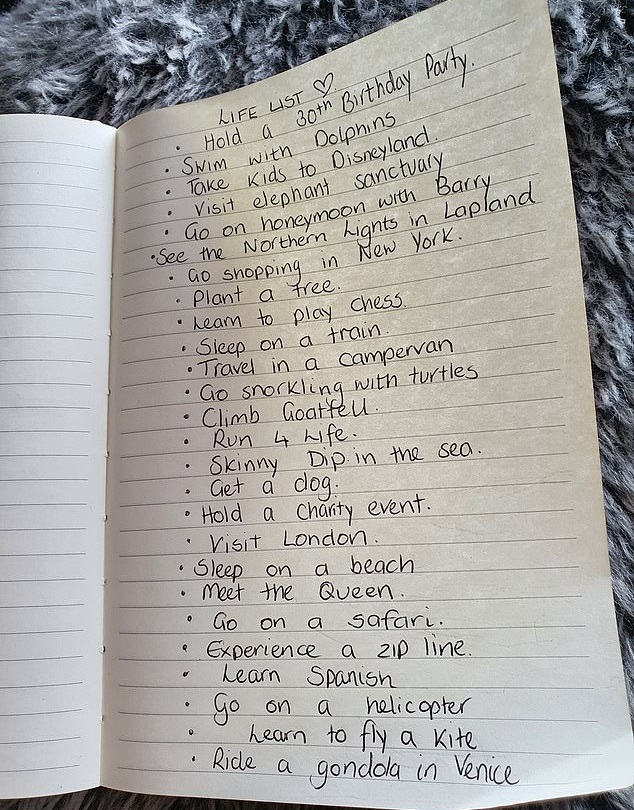 LIFE LIST ♡
• Hold a 30th Birthday Party.
• Swim with Dolphins
• Take Kids to Disneyland.
• Visit elephant sanctuary
• Go on honeymoon with Barry
• See the Northern Lights in Lapland
• Go shopping in New York.
• Plant a tree.
• Learn to play chess.
• Sleep on a train.
• Travel in a campervan
• Go snorkling with turtles
• Climb Goatfell.
• Run 4 Life.
• Skinny Dip in the sea.
• Get a dog.
• Hold a Charity event.
• Visit London.
• Sleep on a beach
• Meet the Queen.
• Go on a safari.
• Experience a zip line.
• Learn Spanish
• Go on a helicopter
• Learn to fly a Kite
• Ride a gondola in Venice